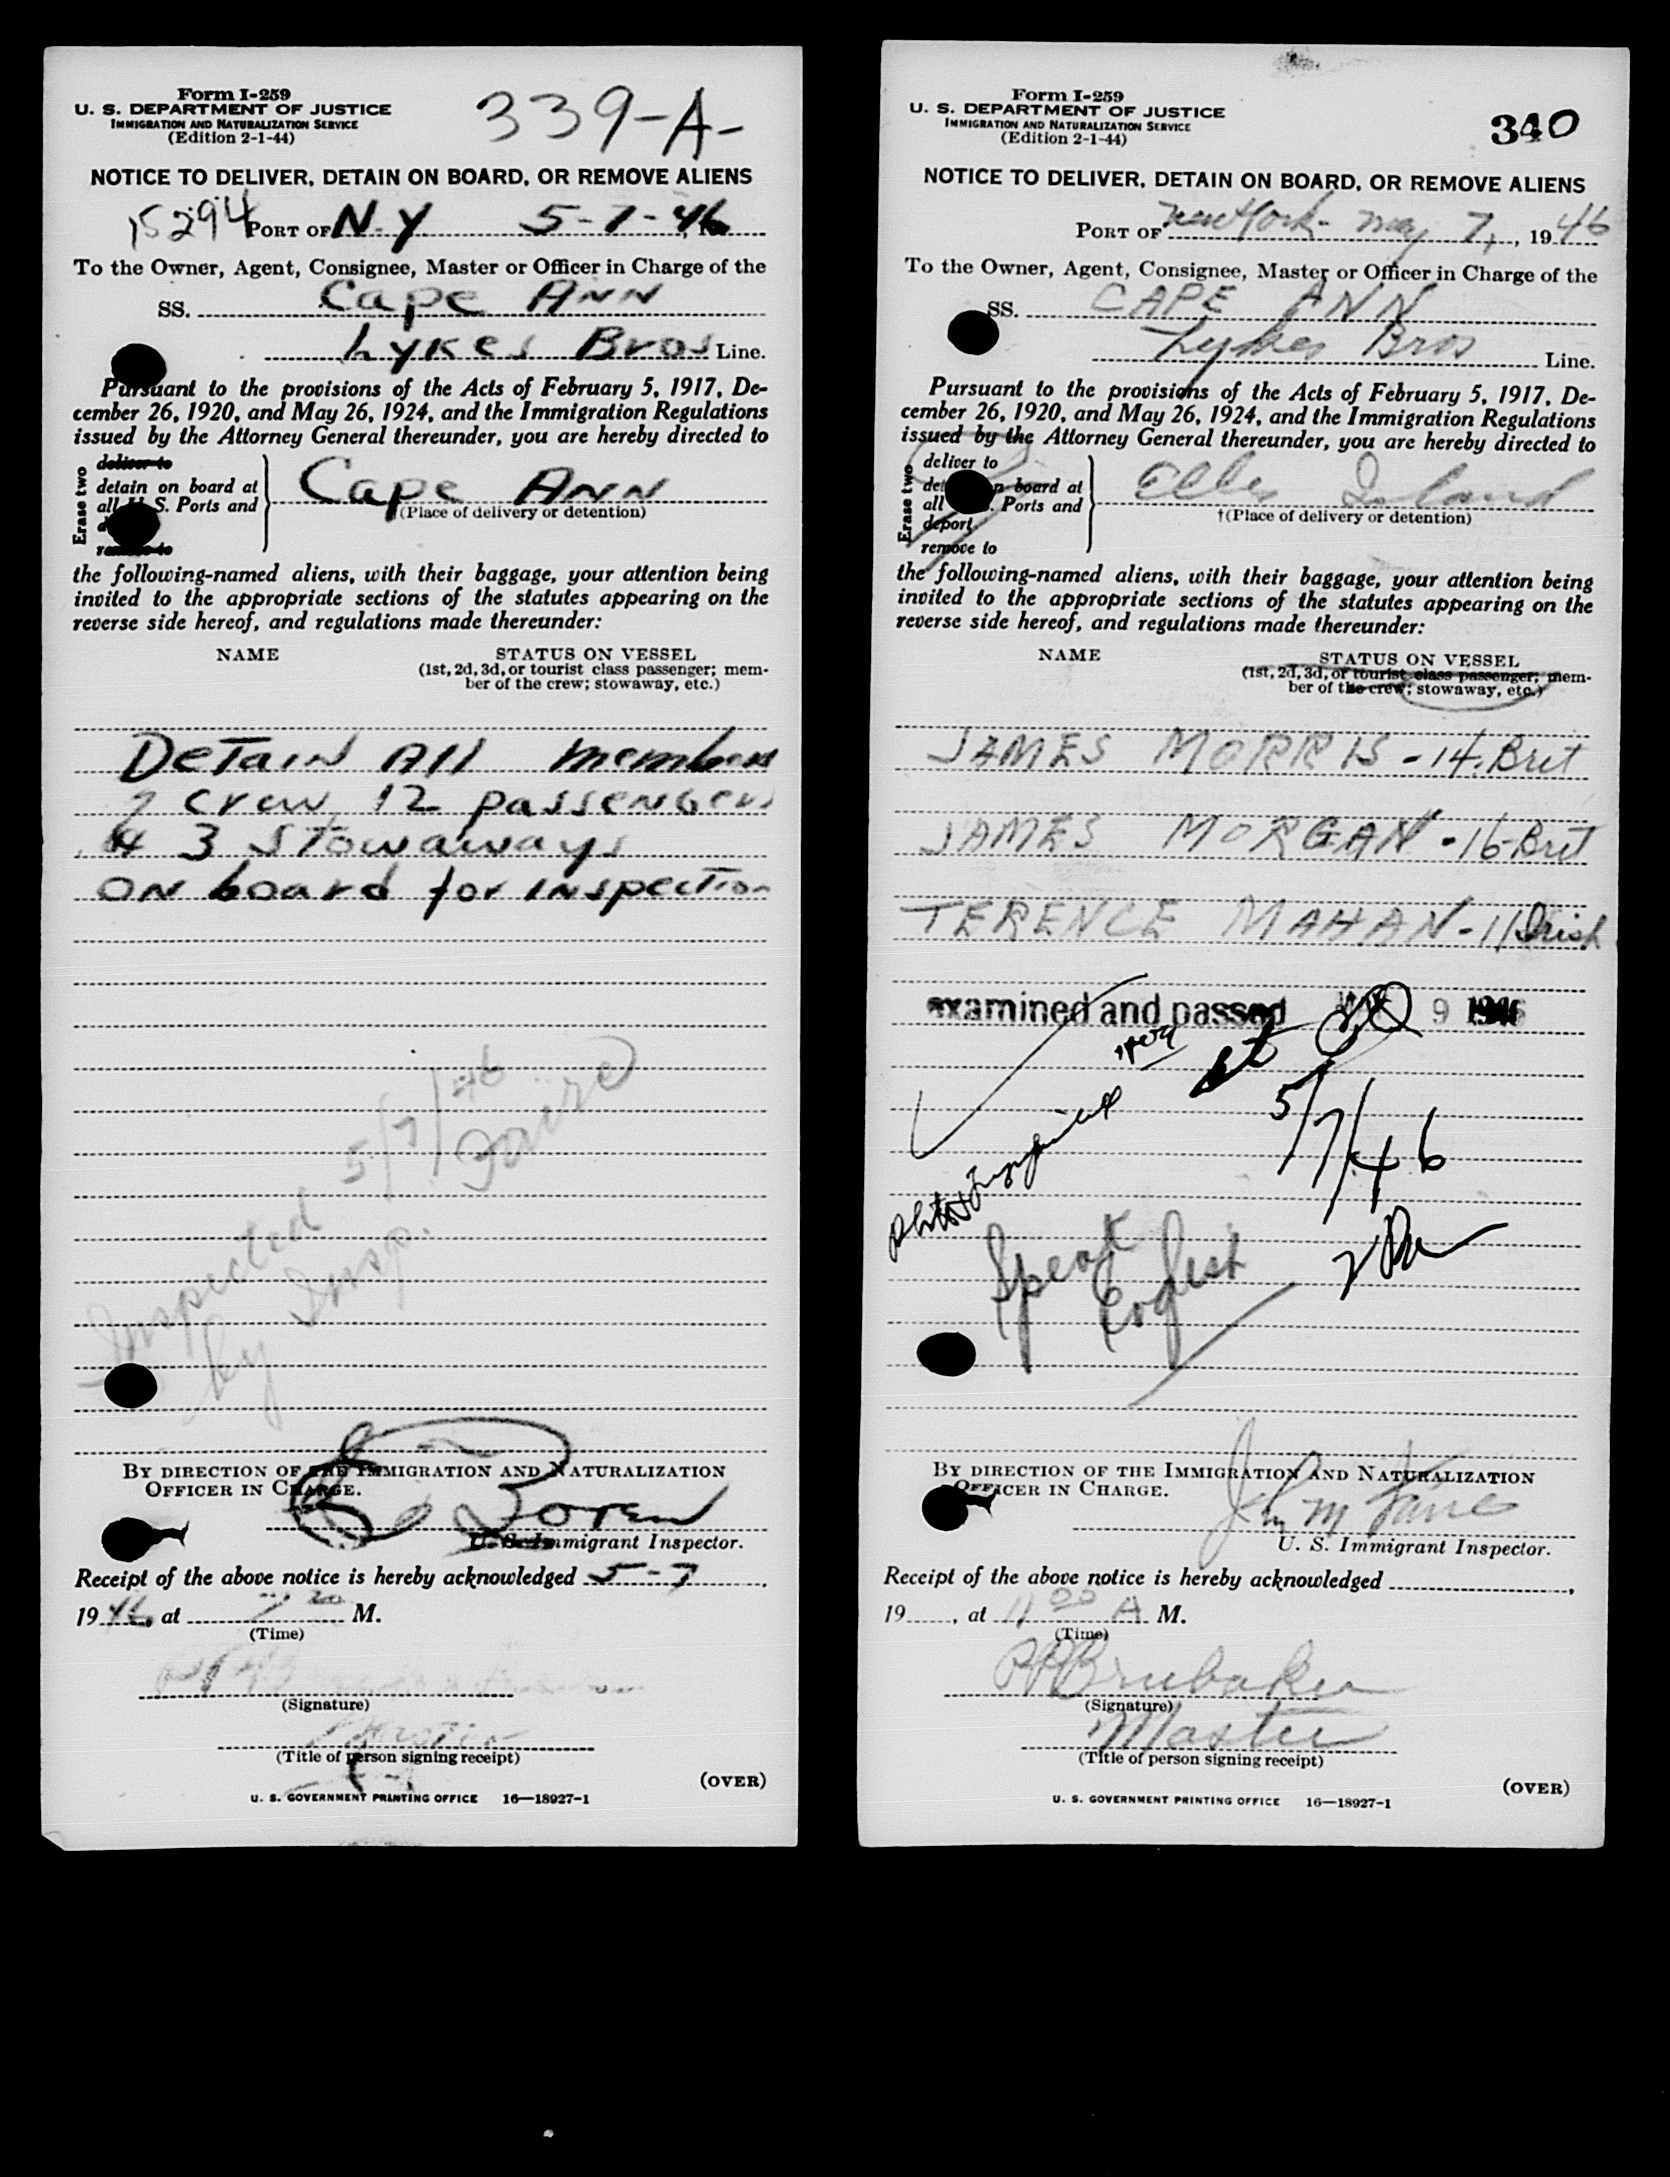 Form I-259
U. S. DEPARTMENT OF JUSTICE
IMMIGRATION AND NATURALIZATION SERVICE
(Edition 2-1-44)
339-A-
NOTICE TO DELIVER, DETAIN ON BOARD, OR REMOVE ALIENS
15294 PORT OF N.Y 5-7-46
To the Owner, Agent, Consignee, Master or Officer in Charge of the
SS. Cape Ann
Lykes Bros Line.
Pursuant to the provisions of the Acts of February 5, 1917, De-
cember 26, 1920, and May 26, 1924, and the Immigration Regulations
issued by the Attorney General thereunder, you are hereby directed to
Erase two
deliver to
detain on board at
all U. S. Ports and
remove to
Cape Ann
(Place of delivery or detention)
the following-named aliens, with their baggage, your attention being
invited to the appropriate sections of the statutes appearing on the
reverse side hereof, and regulations made thereunder:
NAME STATUS ON VESSEL
(1st, 2d, 3d, or tourist class passenger; mem-
ber of the crew; stowaway, etc.)
Detain All members
of crew, 12 passengers
& 3 Stowaways
on board for inspection
Inspected 5/7/46
by Insp.
BY DIRECTION OF THE IMMIGRATION AND NATURALIZATION
OFFICER IN CHARGE.
U. S. Immigrant Inspector.
Receipt of the above notice is hereby acknowledged 5-7,
1946, at 7 20 M.
(Time)
(Signature)
(Title of person signing receipt)
(OVER)
U. S. GOVERNMENT PRINTING OFFICE 16—18927-1
Form I-259
U. S. DEPARTMENT OF JUSTICE
IMMIGRATION AND NATURALIZATION SERVICE
(Edition 2-1-44)
340
NOTICE TO DELIVER, DETAIN ON BOARD, OR REMOVE ALIENS
PORT OF New York - May 7, 1946
To the Owner, Agent, Consignee, Master or Officer in Charge of the
SS. CAPE ANN
Lykes Bros Line.
Pursuant to the provisions of the Acts of February 5, 1917, De-
cember 26, 1920, and May 26, 1924, and the Immigration Regulations
issued by the Attorney General thereunder, you are hereby directed to
Erase two
deliver to
detain on board at
all U. S. Ports and
deport
remove to
Ellis Island
†(Place of delivery or detention)
the following-named aliens, with their baggage, your attention being
invited to the appropriate sections of the statutes appearing on the
reverse side hereof, and regulations made thereunder:
NAME STATUS ON VESSEL
(1st, 2d, 3d, or tourist class passenger; mem-
ber of the crew; stowaway, etc.)
JAMES MORRIS - 14. Brit
JAMES MORGAN - 16-Brit
TERENCE MAHAN - 11 Irish
examined and passed 9 1946
5/7/46
Speak
English
BY DIRECTION OF THE IMMIGRATION AND NATURALIZATION
OFFICER IN CHARGE.
John M
U. S. Immigrant Inspector.
Receipt of the above notice is hereby acknowledged
19 , at 11 00 A M.
(Time)
Brubaker
(Signature)
Master
(Title of person signing receipt)
(OVER)
U. S. GOVERNMENT PRINTING OFFICE 16—18927-1